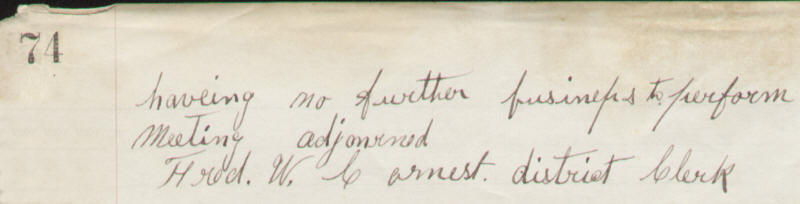 74
haveing no further business to perform
Meeting adjourned
Fred. W. Earnest. district Clerk